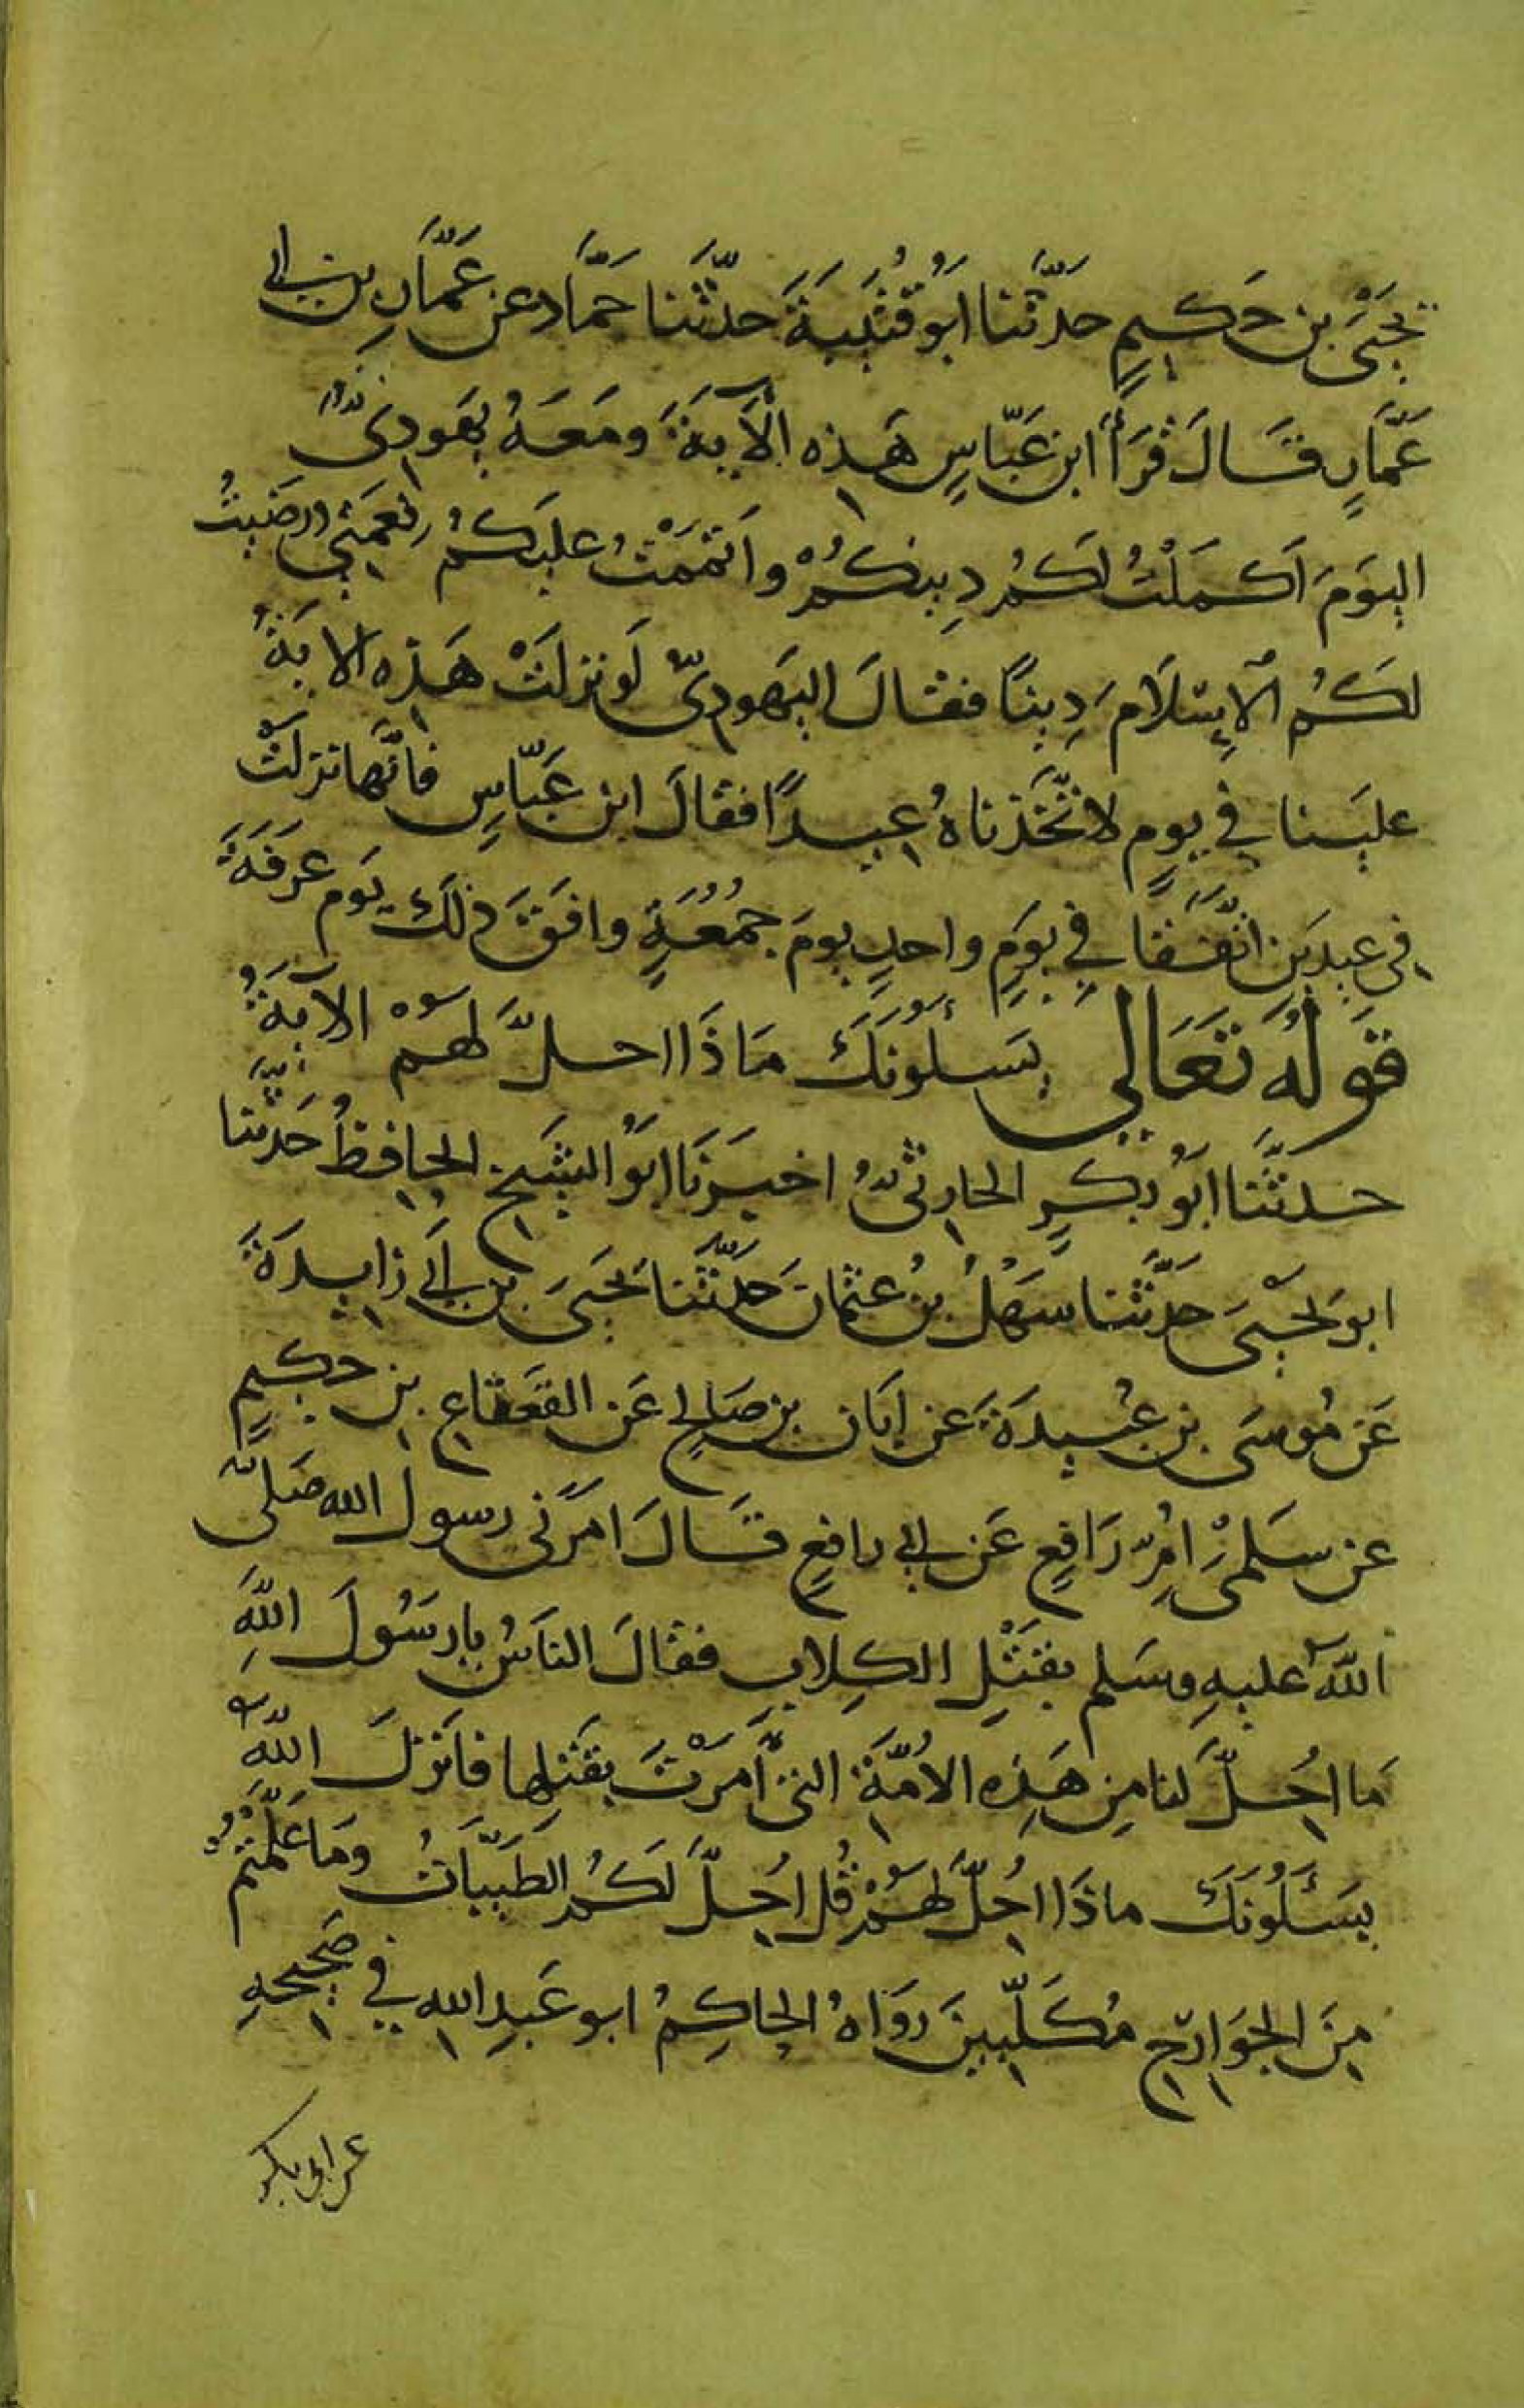 يَحْيَى بن حَكيمٍ حدّثنا ابَوُ قُتَيبَةَ حدثّنا حمّاد عن عَمَّارِ بن ابي
عَمّارٍ قَالَ قَرَأ ابن عَبّاسٍ هَذِه الْآيةَ وَمَعَهُ يَهَودِيٌّ
اليَومَ اَكمَلْتُ لَكُم دِينَكُمْ واَتْمَمْتُ عليَكُم نِعمَتِي وَرَضَيتُ
لَكُم الْاِسْلَامَ دِينًا فقالَ اليَهوديّ لَو نزلَتْ هَذِه الايَةُ
عليَنا في يومٍ لاتّخَذناهُ عِيدًا فقالَ ابن عَبّاسٍ فاَنَّها نزلَتْ
في عِيدَين اتَّفَقَا في يَومٍ واحدٍ يومَ جُمُعَةٍ وافَقَ ذلكَ يَوم عَرَفَةَ
قَولُهُ تَعَالي يَسـَٔلُونَكَ مَاذَا احلَّ لَهُمْ الآيةُ
حدثَّنا ابَوُ بكرٍ الحارِثيُّ اخبرَنَا ابَوُ الشيَخ الحافِظُ حَدّثنا
ابو يَحْيىَ حدّثَنا سَهْلُ بنُ عثمانَ حَدّثَنا يَحيَىَ بن اَبي زايِدَةَ
عَن مُوسَى بن عُبيدَةَ عن اَبَان بن صَالِح عَن القَعَقاعِ بن حكيمٍ
عن سَلمَىْ اُمِّ رَافِعٍ عَن ابي رافعٍ قَالَ اَمَرَني رسول الله صَلىَّ
اللّهُ عليهِ وسَلم بقَتْلِ الكِلابِ فقالَ الناَسُ يا رَسُولَ اللّهِ
مَا اُحِلَّ لنا مِن هَذِه الاُمّةِ التي اَمَرْتَ بقَتلِها فاَنزلَ اللّهُ
يَسـَٔلُونَكَ ماذَا اُحِلَّ لَهُمْ قُل اُحِلَّ لَكُم الطَيّبَاتُ وَمَا عَلّمْتُمْ
مِنَ الجَوَارِح مُكَلّبِينَ رَوَاهُ الحاكِمُ ابو عَبدِ الله في صَحِيحهِ
عن ابى بكر